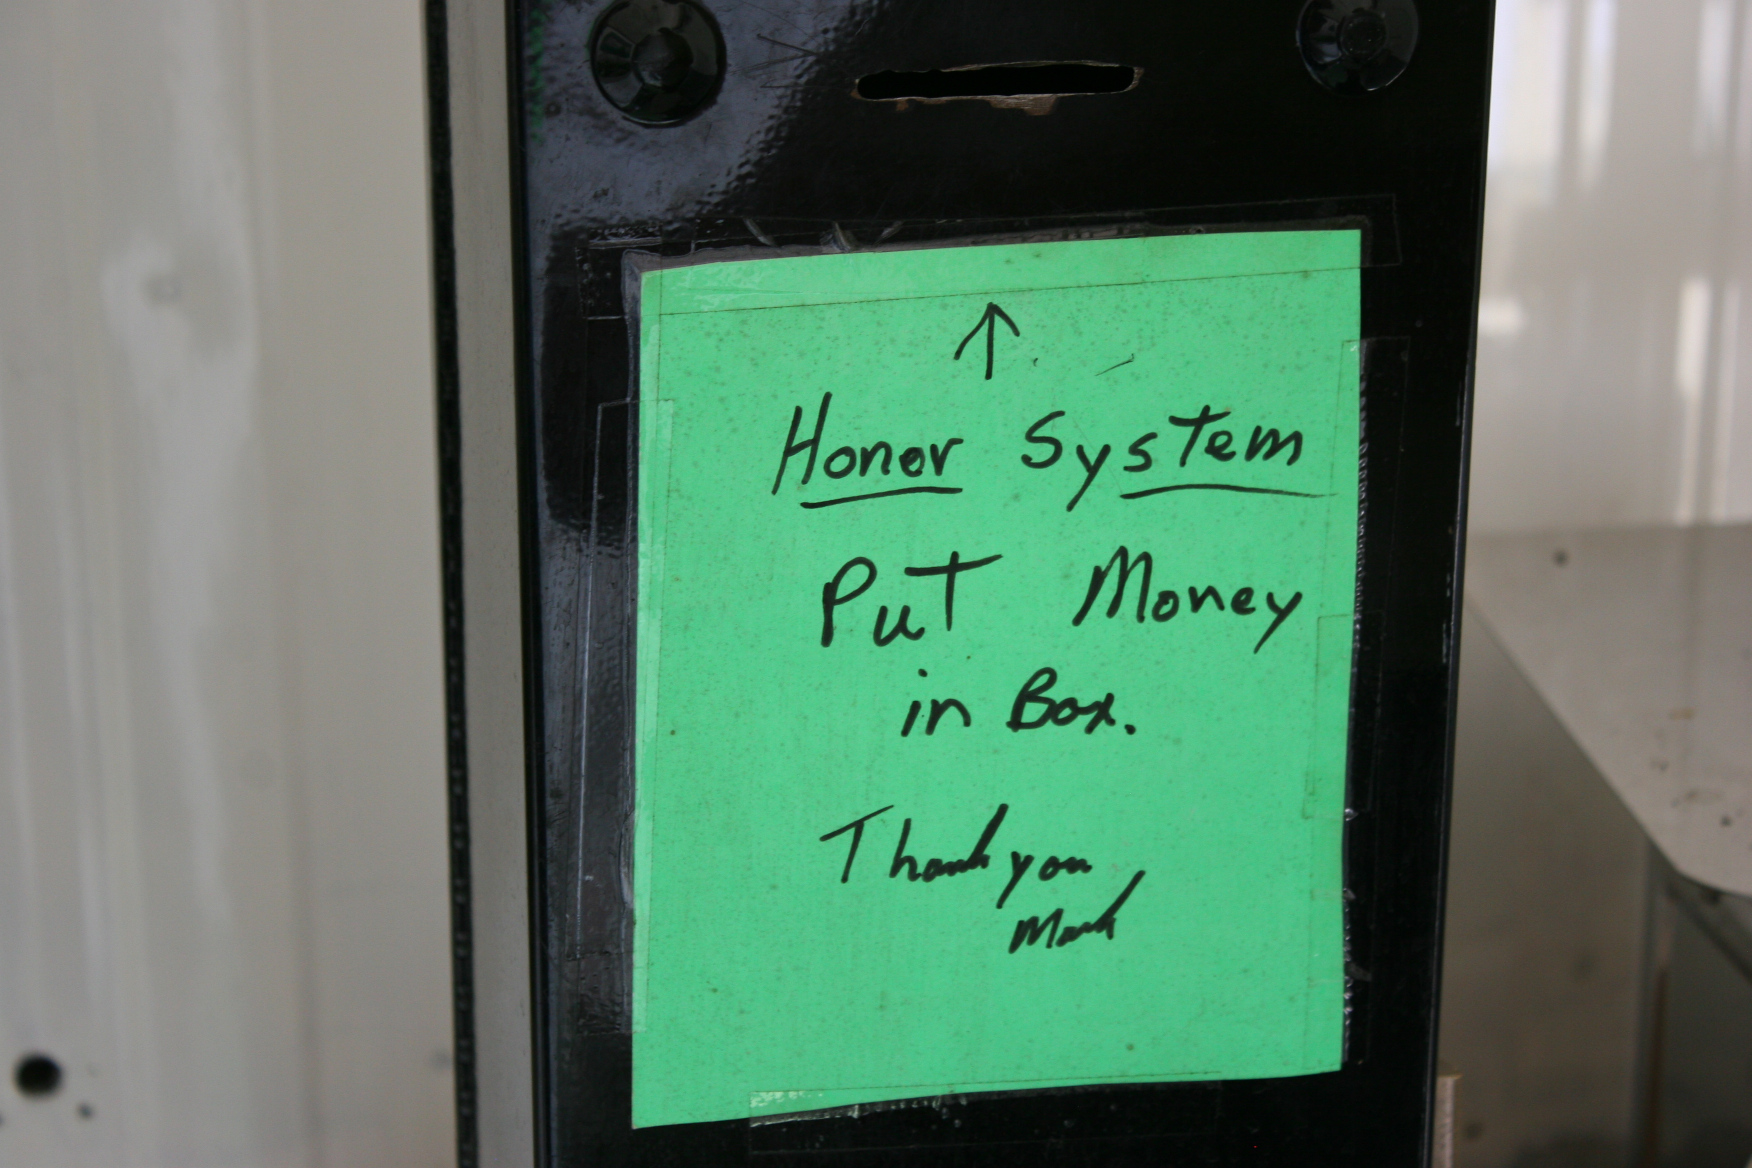 ↑
Honor System
Put Money
in Box.
Thank you
Mark